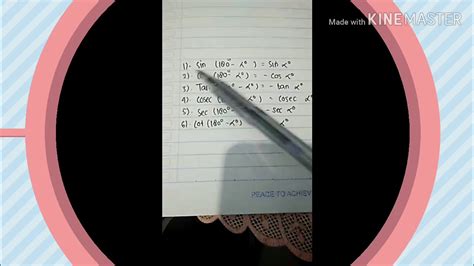 Made with KINEMASTER
1). Sin (180° - α°) = Sin α°
2). (180° - α°) = - Cos α°
3). Tan ° - α°) = - tan α°
4) cosec ( - α°) = cosec α°
5). Sec (180° - - sec α°
6). Cot (180° - α°) α°
PEACE TO ACHIEV